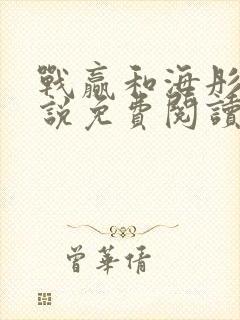 戰贏和海彤
說免費閱讀
曾華倩